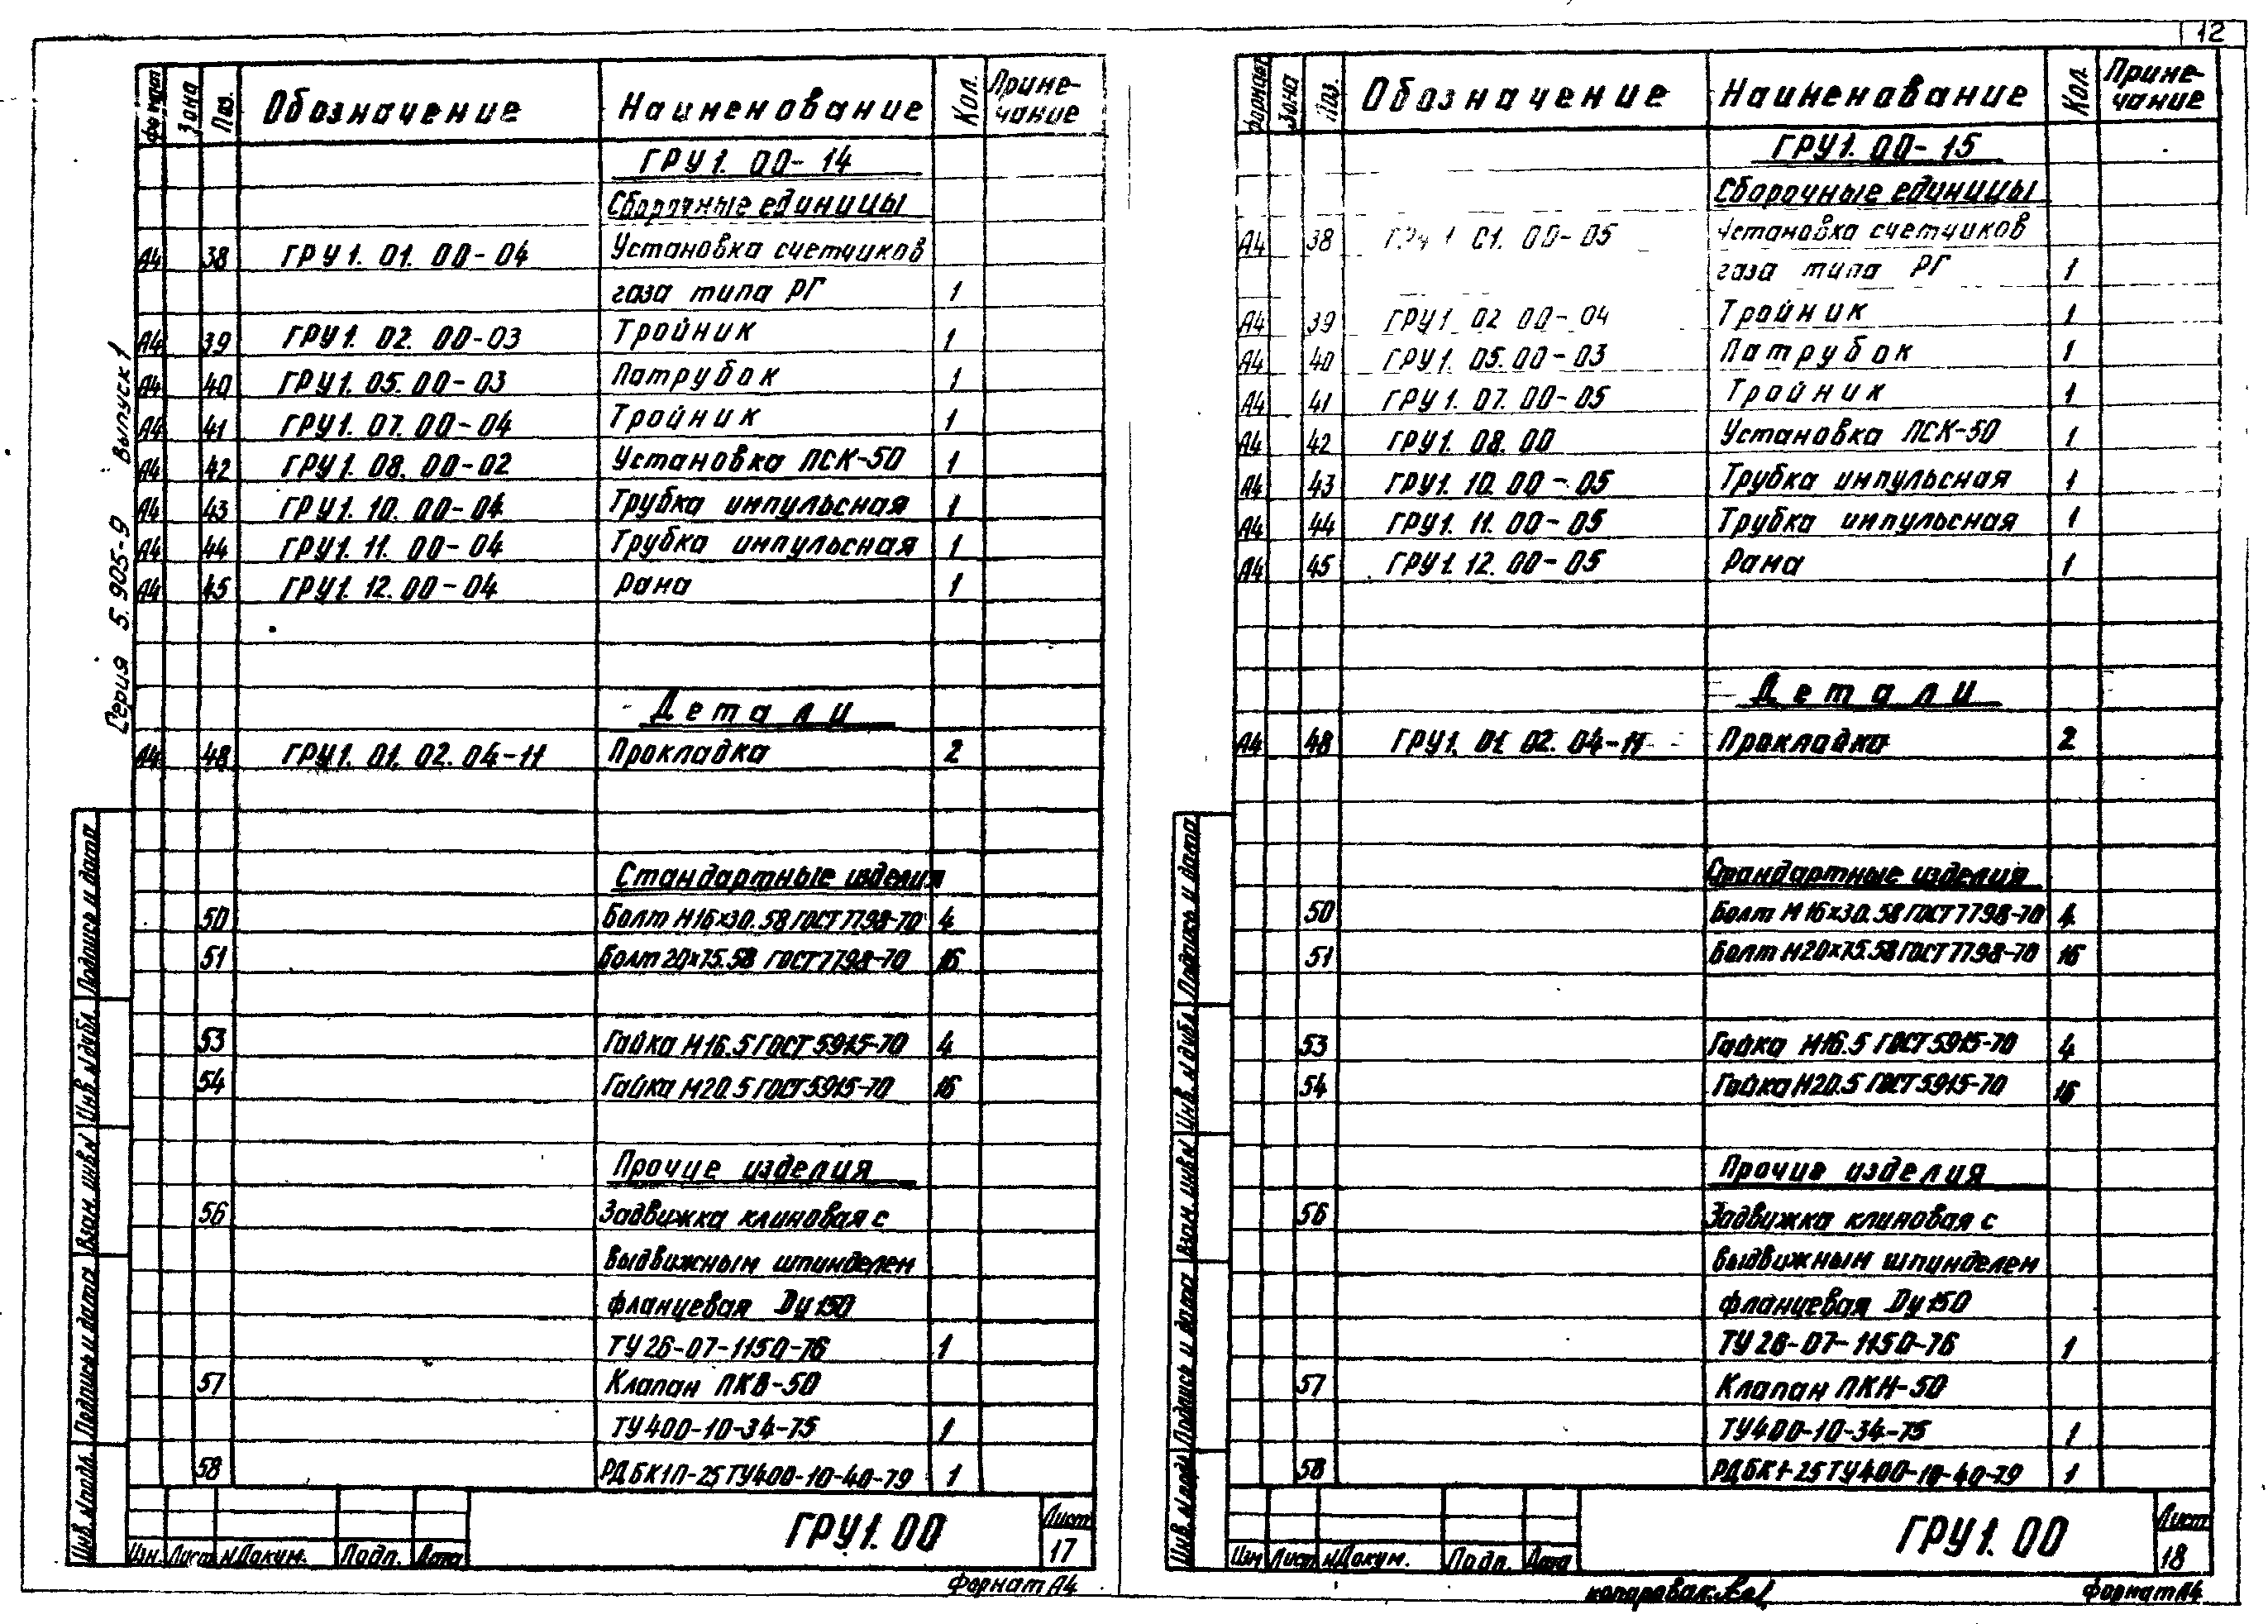 12
Серия 5.905-9 Выпуск 1
Формат Зона Поз. Обозначение Наименование Кол. Приме-
чание
ГРУ1. 00-14
Сборочные единицы
А4 38 ГРУ1. 01. 00-04 Установка счетчиков
газа типа РГ 1
А4 39 ГРУ1. 02. 00-03 Тройник 1
А4 40 ГРУ1. 05. 00-03 Патрубок 1
А4 41 ГРУ1. 07. 00-04 Тройник 1
А4 42 ГРУ1. 08. 00-02 Установка ПСК-50 1
А4 43 ГРУ1. 10. 00-04 Трубка импульсная 1
А4 44 ГРУ1. 11. 00-04 Трубка импульсная 1
А4 45 ГРУ1. 12. 00-04 Рама 1
Детали
А4 48 ГРУ1. 01. 02. 04-11 Прокладка 2
Стандартные изделия
50 Болт М16х30.58 ГОСТ7798-70 4
51 Болт 20х75.58 ГОСТ7798-70 16
53 Гайка М16.5 ГОСТ 5915-70 4
54 Гайка М20.5 ГОСТ5915-70 16
Прочие изделия
56 Задвижка клиновая с
выдвижным шпинделем
фланцевая Dу150
ТУ26-07-1150-76 1
57 Клапан ПКВ-50
ТУ400-10-34-75 1
58 РДБК1П-25 ТУ400-10-40-79 1
Инв. № подл. Подпись и дата Взам. инв № Инв. № дубл. Подпись и дата
Изм Лист № Докум. Подп. Дата
ГРУ1. 00
Лист
17
Формат А4
Формат Зона Поз. Обозначение Наименование Кол. Приме-
чание
ГРУ1. 00-15
Сборочные единицы
А4 38 ГРУ1 01. 00-05 Установка счетчиков
газа типа РГ 1
А4 39 ГРУ1. 02 00-04 Тройник 1
А4 40 ГРУ1. 05. 00-03 Патрубок 1
А4 41 ГРУ1. 07. 00-05 Тройник 1
А4 42 ГРУ1. 08. 00 Установка ПСК-50 1
А4 43 ГРУ1. 10. 00-05 Трубка импульсная 1
А4 44 ГРУ1. 11. 00-05 Трубка импульсная 1
А4 45 ГРУ1. 12. 00-05 Рама 1
Детали
А4 48 ГРУ1. 01 02. 04-11 Прокладка 2
Стандартные изделия
50 Болт М16х30.58 ГОСТ7798-70 4
51 Болт М20х75.58 ГОСТ7798-70 16
53 Гайка М16.5 ГОСТ5915-70 4
54 Гайка М20.5 ГОСТ5915-70 16
Прочие изделия
56 Задвижка клиновая с
выдвижным шпинделем
фланцевая Dу150
ТУ26-07-1150-76 1
57 Клапан ПКН-50
ТУ400-10-34-75 1
58 РДБК1-25 ТУ400-10-40-79 1
Инв. № подл Подпись и дата Взам. инв № Инв. № дубл. Подпись и дата
Изм Лист № Докум. Подп. Дата
ГРУ1. 00
Лист
18
копировал:
Формат А4